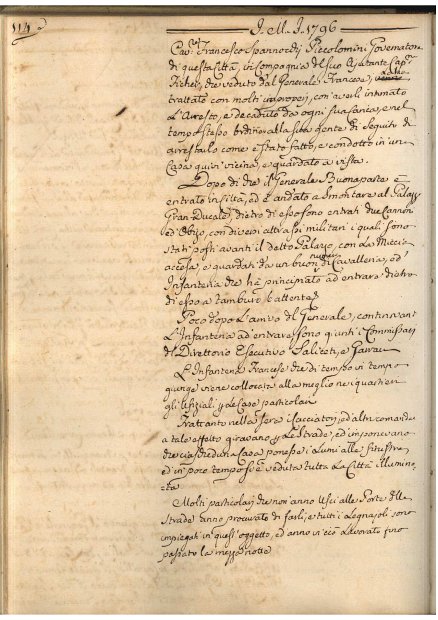 114
J. M. J. 1796
Cav.r Francesco Spannocchi Piccolomini Governatore
di questa Città, in Compagnia del suo Ajutante Cap.no
che veduto dal Generale Francese,
trattato con molti improperj, con averli intimato
L'Arresto, e decaduto da ogni sua carica, e nel
tempo stesso ordinò alla sua gente di seguito di
arrestarlo come è stato fatto, e condotto in una
Casa quivi vicina, e guardato a vista.
Dopo di che il Generale Buonaparte è
entrato in Città, ed è andato a Smontare al Palazzo
Gran Ducale, dietro di esso sono entrati due Cannoni
ed Obizo, con diversi altri assi militari i quali sono
stati posti avanti il detto Palazzo, con La Miccia
accesa, e guardati da un buon numero di Cavalleria, ed
Infanteria che hà principiato ad entrare dietro
di esso a tamburo battente
Poco dopo L'arrivo del Generale, continuando
L'Infanteria ad entrare sono giunti i Commissarj
del Direttorio Esecutivo Saliceti, e Garrau
L'Infanteria Francese che di tempo in tempo
giunge viene collocata alla meglio nei quartieri
gli Ufiziali per le Case particolari
Frattanto nella sera i Cacciatori, ed altri comandati
a tale effetto giravano per le Strade, ed imponevano
che ciascheduna Casa ponesse i Lumi alle finestre,
ed in poco tempo si è veduta tutta La Città illumino
rata
Molti particolari che non anno Usci alle Porte delle
Strade anno procurato di farli, e tutti i Legnajoli sono
impiegati in quest'oggetto, ed anno vi ciò Lavorato fino
passato la mezza notte